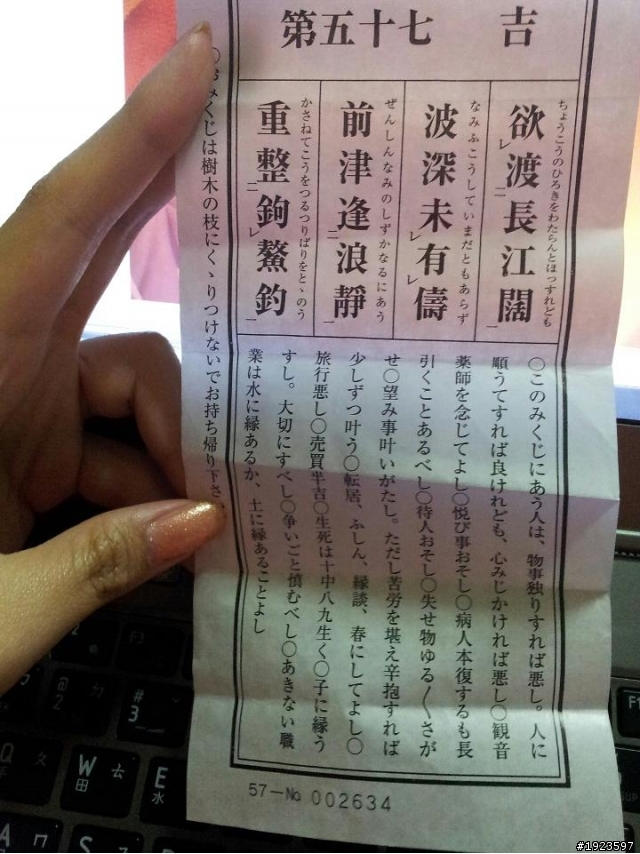 第五十七 吉
欲渡長江闊
ちょうこうのひろきをわたらんとほっすれども
波深未有儔
なみふこうしていまだともあらず
前津逢浪靜
ぜんしんなみのしずかなるにあう
重整鉤鰲釣
かさねてこうをつるつりばりをとゝのう
○このみくじにあう人は、物事独りすれば悪し。人に
順うてすれば良けれども、心みじかければ悪し○観音
薬師を念じてよし○悦び事おそし○病人本復するも長
引くことあるべし○待人おそし○失せ物ゆる〳〵さが
せ○望み事叶いがたし。ただし苦労を堪え辛抱すれば
少しずつ叶う○転居、ふしん、縁談、春にしてよし○
旅行悪し○売買半吉○生死は十中八九生く○子に縁う
すし。大切にすべし○争いごと慎むべし○あきない職
業は水に縁あるか、土に縁あることよし
○おみくじは樹木の枝にくゝりつけないでお持ち帰り下さい
57-No 002634
#
3
W
田
ㄊ
E
水
Q
A
S
F3
@
2
#1923597